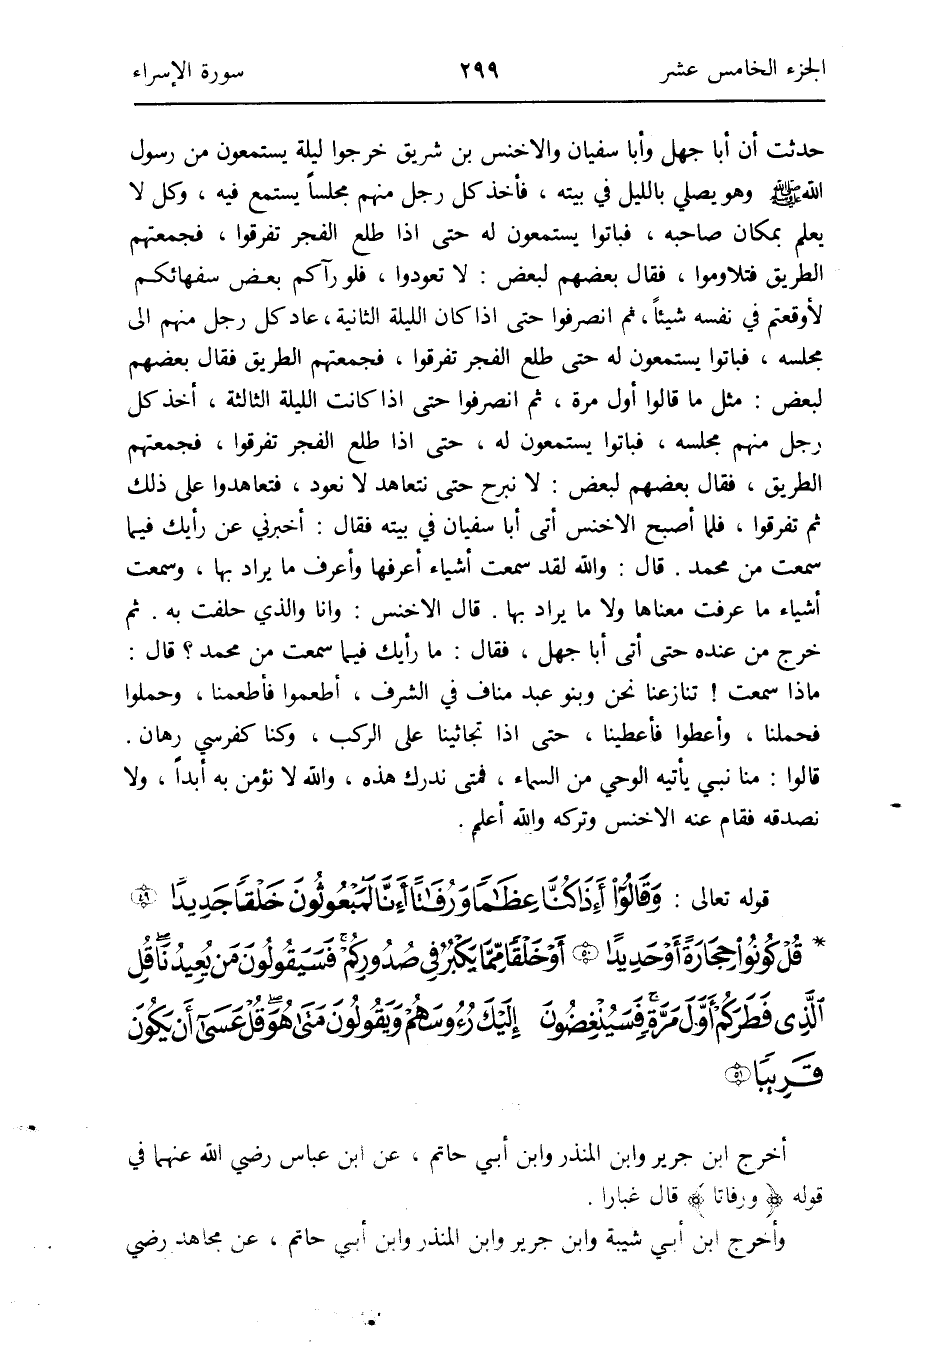 الجزء الخامس عشر ٢٩٩ سورة الإسراء
حدثت أن أبا جهل وأبا سفيان والاخنس بن شريق خرجوا ليلة يستمعون من رسول
الله ﷺ وهو يصلي بالليل في بيته ، فأخذ كل رجل منهم مجلساً يستمع فيه ، وكل لا
يعلم بمكان صاحبه ، فباتوا يستمعون له حتى اذا طلع الفجر تفرقوا ، فجمعتهم
الطريق فتلاوموا ، فقال بعضهم لبعض : لا تعودوا ، فلو رآكم بعض سفهائكم
لأوقعتم في نفسه شيئاً ، ثم انصرفوا حتى اذا كان الليلة الثانية ، عاد كل رجل منهم الى
مجلسه ، فباتوا يستمعون له حتى طلع الفجر تفرقوا ، فجمعتهم الطريق فقال بعضهم
لبعض : مثل ما قالوا أول مرة ، ثم انصرفوا حتى اذا كانت الليلة الثالثة ، أخذ كل
رجل منهم مجلسه ، فباتوا يستمعون له ، حتى اذا طلع الفجر تفرقوا ، فجمعتهم
الطريق ، فقال بعضهم لبعض : لا نبرح حتى نتعاهد لا نعود ، فتعاهدوا على ذلك
ثم تفرقوا ، فلما أصبح الاخنس أتى أبا سفيان في بيته فقال : أخبرني عن رأيك فيما
سمعت من محمد . قال : والله لقد سمعت أشياء أعرفها وأعرف ما يراد بها ، وسمعت
أشياء ما عرفت معناها ولا ما يراد بها . قال الاخنس : وانا والذي حلفت به . ثم
خرج من عنده حتى أتى أبا جهل ، فقال : ما رأيك فيما سمعت من محمد ؟ قال :
ماذا سمعت ! تنازعنا نحن وبنو عبد مناف في الشرف ، أطعموا فأطعمنا ، وحملوا
فحملنا ، وأعطوا فأعطينا ، حتى اذا تجاثينا على الركب ، وكنا كفرسي رهان .
قالوا : منا نبي يأتيه الوحي من السماء ، فمتى ندرك هذه ، والله لا نؤمن به أبداً ، ولا
نصدقه فقام عنه الاخنس وتركه والله أعلم .
قوله تعالى : وَقَالُوٓا۟ أَءِذَا كُنَّا عِظَٰمًا وَرُفَٰتًا أَءِنَّا لَمَبْعُوثُونَ خَلْقًا جَدِيدًا ٤٩
* قُلْ كُونُوا۟ حِجَارَةً أَوْ حَدِيدًا ٥٠ أَوْ خَلْقًا مِّمَّا يَكْبُرُ فِى صُدُورِكُمْ ۚ فَسَيَقُولُونَ مَن يُعِيدُنَا ۖ قُلِ
ٱلَّذِى فَطَرَكُمْ أَوَّلَ مَرَّةٍ ۚ فَسَيُنْغِضُونَ إِلَيْكَ رُءُوسَهُمْ وَيَقُولُونَ مَتَىٰ هُوَ ۖ قُلْ عَسَىٰٓ أَن يَكُونَ
قَرِيبًا ٥١
أخرج ابن جرير وابن المنذر وابن أبي حاتم ، عن ابن عباس رضي الله عنهما في
قوله ﴿ ورفاتا ﴾ قال غبارا .
وأخرج ابن أبي شيبة وابن جرير وابن المنذر وابن أبي حاتم ، عن مجاهد رضي